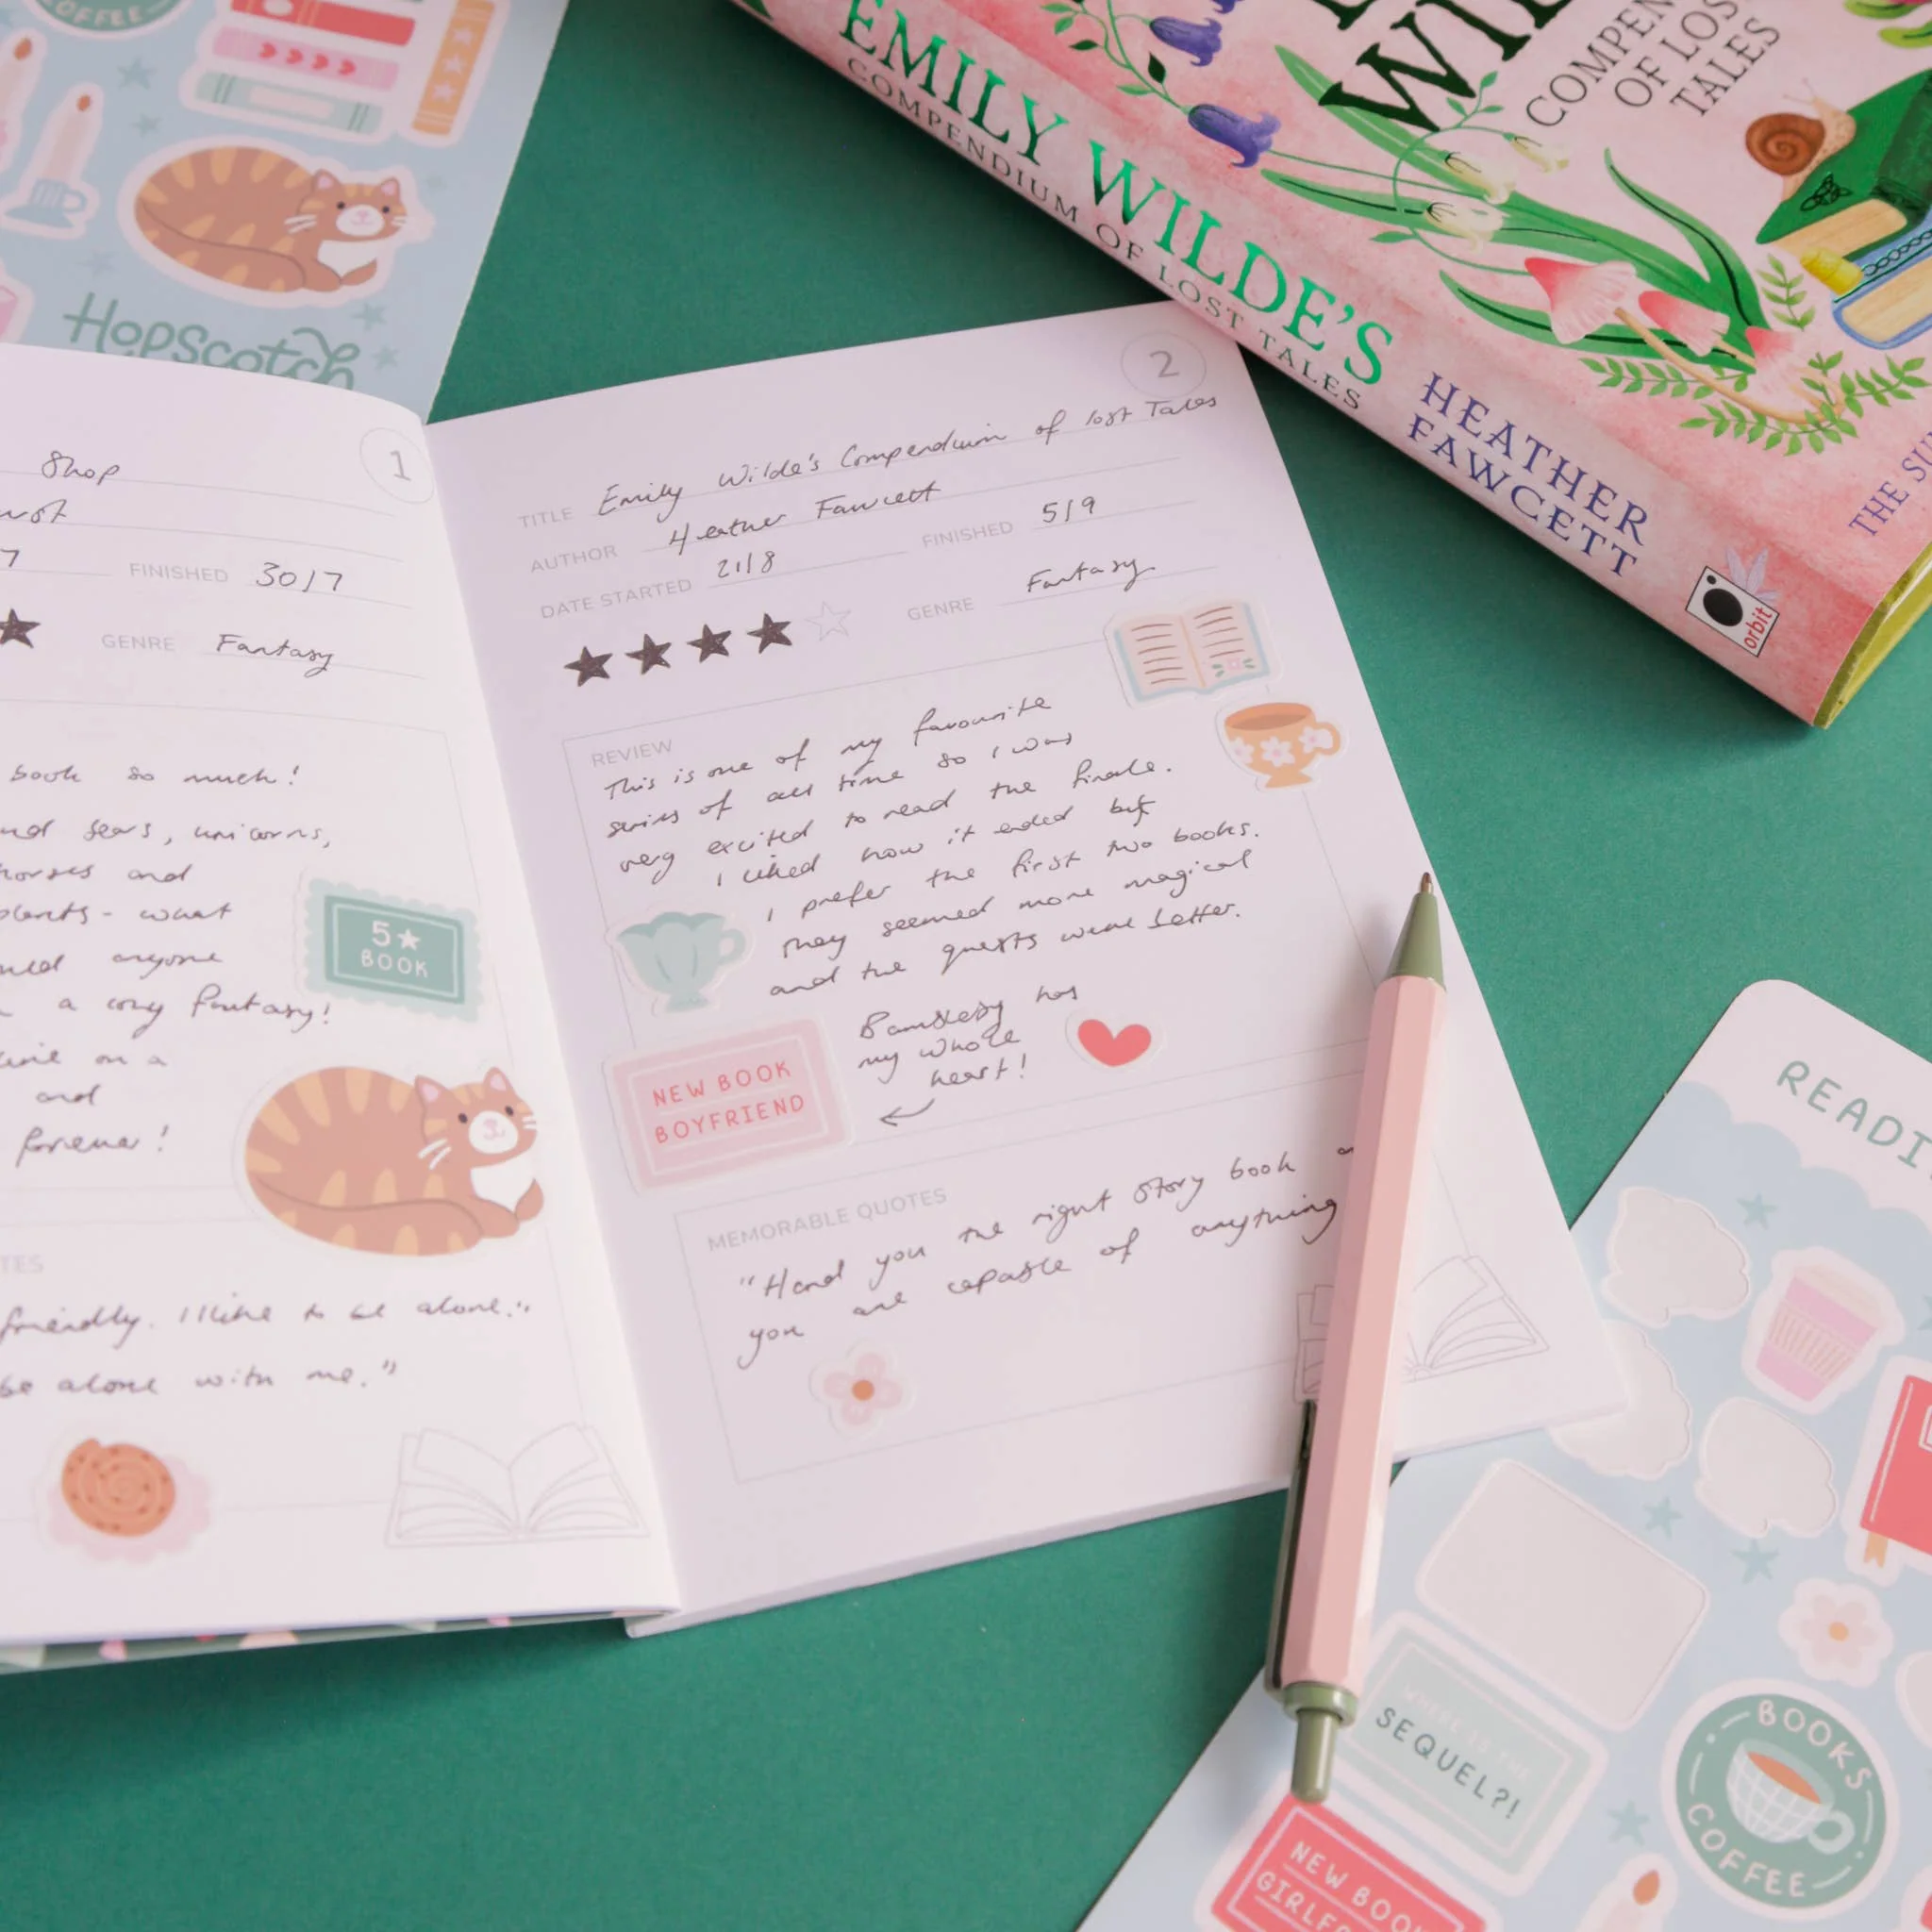 COFFEE
Hopscotch
EMILY WILDE'S
COMPENDIUM OF LOST TALES
HEATHER
FAWCETT
orbit
COMPEN
OF LOS
TALES
THE SU
1
Shop
FINISHED 30/7
GENRE Fantasy
book so much!
sears, unicorns,
horses and
plants - what
anyone
a cosy fantasy!
on a
and
forever!
5★
BOOK
TES
friendly. I like to be alone."
be alone with me."
2
TITLE Emily Wilde's Compendium of lost Tales
AUTHOR Heather Fawcett
DATE STARTED 21/8 FINISHED 5/9
GENRE Fantasy
REVIEW
This is one of my favourite
series of all time so I was
very excited to read the finale.
I liked how it ended but
I prefer the first two books.
They seemed more magical
and the quests were better.
Bambleby has
my whole
heart!
NEW BOOK
BOYFRIEND
MEMORABLE QUOTES
"Hand you the right story book
you are capable of anything
READI
SEQUEL?!
BOOKS
COFFEE
NEW BOO
GIRLF